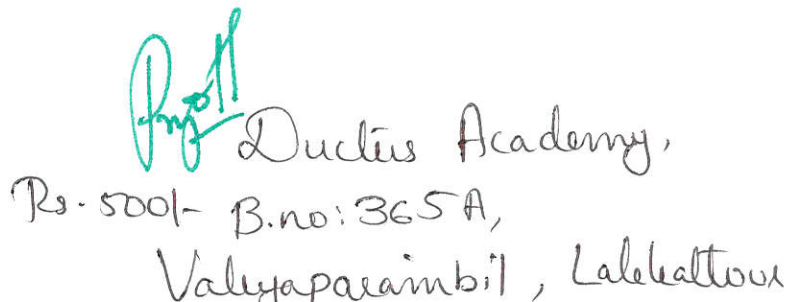 Ductus Academy,
Rs. 500/- B.no: 365A,
Valiyaparambil, Lalekattour